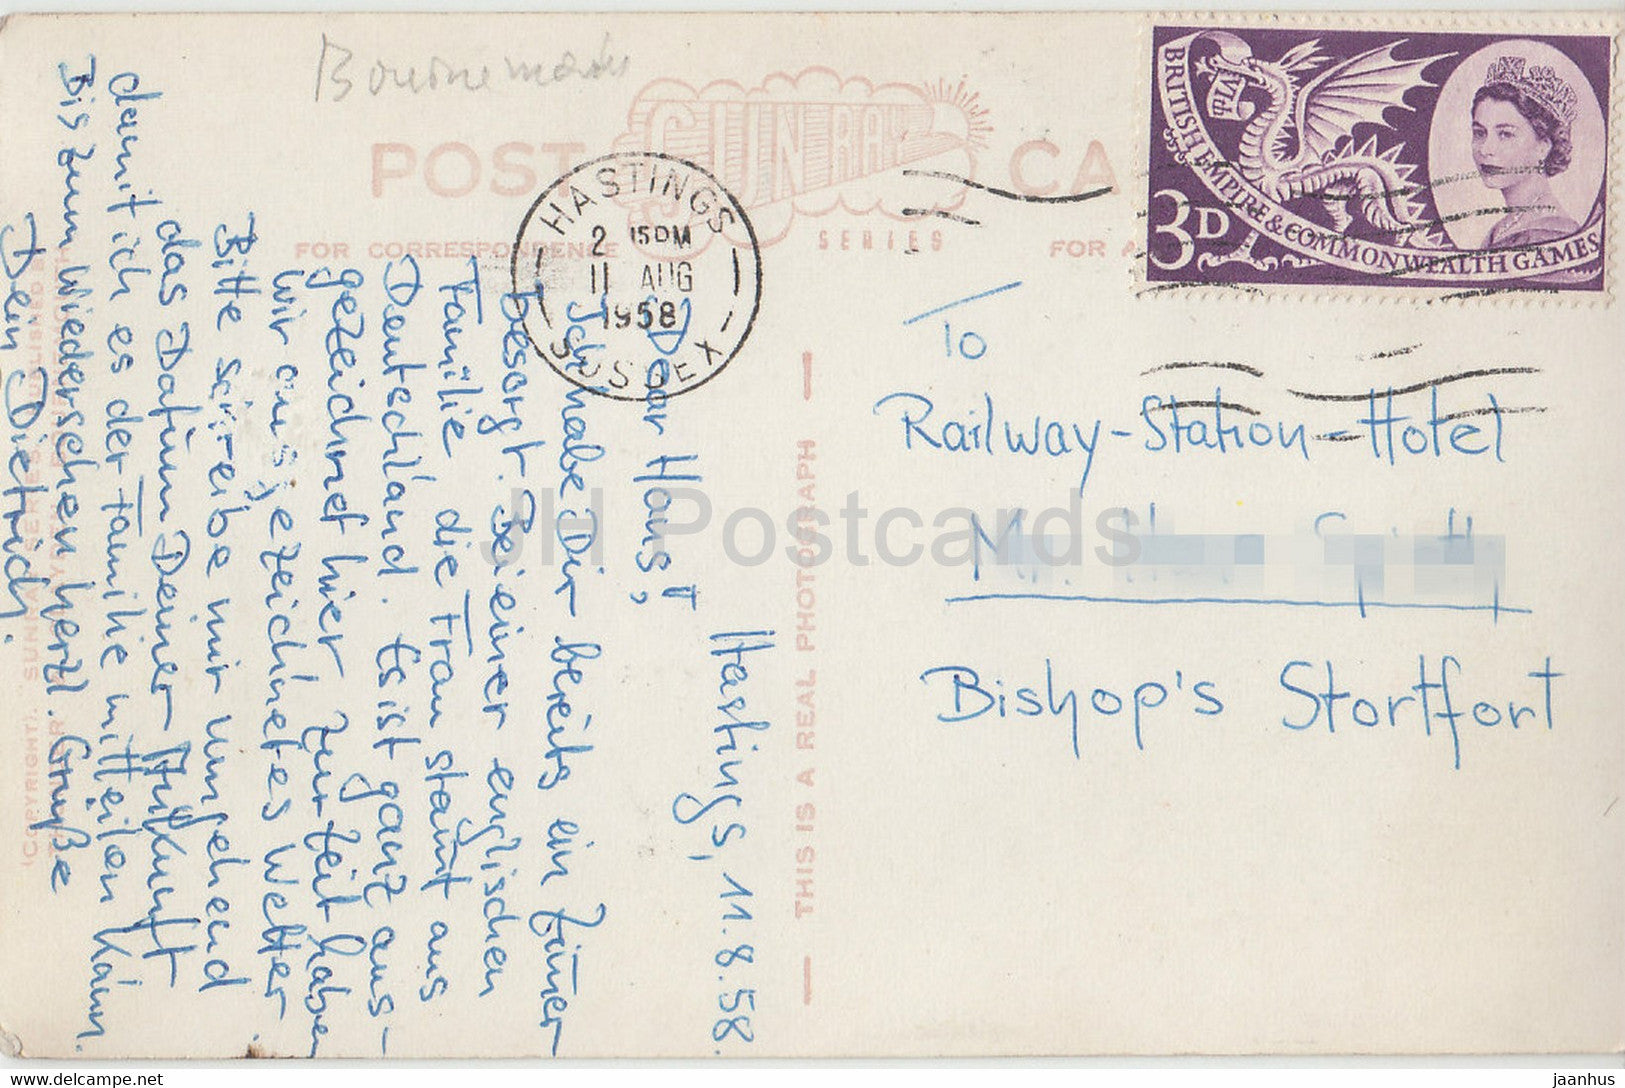 Bournemouth
POST CA
SUNRAY
SERIES
FOR CORRESPONDENCE
FOR A
HASTINGS
2 15 PM
11 AUG
1958
SUSSEX
BRITISH EMPIRE & COMMONWEALTH GAMES
3D
Hastings, 11.8.58.
Dear Hans,
Ich habe Dir bereits ein Zimmer
besorgt. Bei einer englischen
Familie, die Frau stammt aus
Deutschland. Es ist ganz aus-
gezeichnet hier. Zur Zeit haben
wir ausgezeichnetes Wetter.
Bitte schreibe mir umgehend
das Datum Deiner Ankunft
damit ich es der Familie mitteilen kann.
Bis zum Wiedersehen herzl. Grüße
Dein Dietrich.
To
Railway-Station-Hotel
Bishop's Stortfort
THIS IS A REAL PHOTOGRAPH
(COPYRIGHT). "SUNRAY" SERIES. PUBLISHED BY
JH Postcards
www.delcampe.net
jaanhus